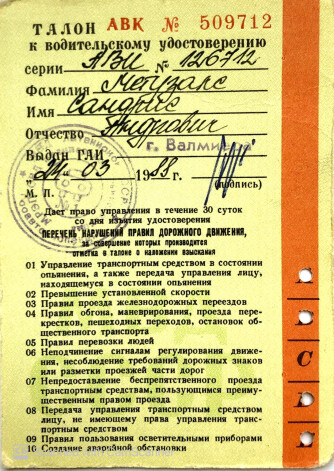 ТАЛОН АВК № 509712
к водительскому удостоверению
серии АВИ № 126712
Фамилия
Имя Сандрис
Отчество
Выдан ГАИ г. Валмиера
24 03 1988 г.
М. П. (подпись)
Дает право управления в течение 30 суток
со дня изъятия удостоверения
ПЕРЕЧЕНЬ НАРУШЕНИЙ ПРАВИЛ ДОРОЖНОГО ДВИЖЕНИЯ,
за совершение которых производится
отметка в талоне о наложении взыскания
01 Управление транспортным средством в состоянии
опьянения, а также передача управления лицу,
находящемуся в состоянии опьянения
02 Превышение установленной скорости
03 Правил проезда железнодорожных переездов
04 Правил обгона, маневрирования, проезда пере-
крестков, пешеходных переходов, остановок об-
щественного транспорта
05 Правил перевозки людей
06 Неподчинение сигналам регулирования движе-
ния, несоблюдение требований дорожных знаков
или разметки проезжей части дорог
07 Непредоставление беспрепятственного проезда
транспортным средствам, пользующимся преиму-
щественным правом проезда
08 Передача управления транспортным средством
лицу, не имеющему права управления транс-
портным средством
09 Правил пользования осветительными приборами
10 Создание аварийной обстановки
A
B
C
D